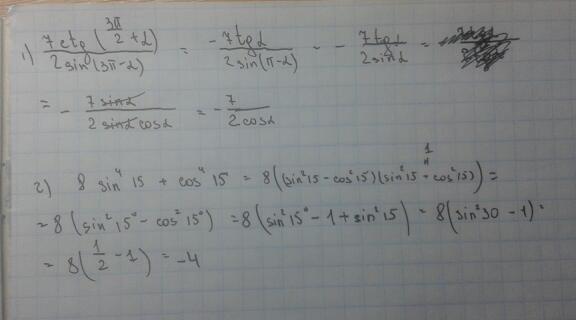 1) 7ctg(3π/2+α) / 2sin(3π-α) = -7tgα / 2sin(π-α) - - 7tgα / 2sinα =
= - 7sinα / 2sinα cosα = - 7 / 2cosα
2) 8 sin⁴15 + cos⁴15 = 8((sin²15-cos²15)(sin²15+cos²15)) = 1
= 8(sin²15°-cos²15°) = 8(sin²15°-1+sin²15) = 8(sin²30-1)=
= 8(1/2-1) = -4